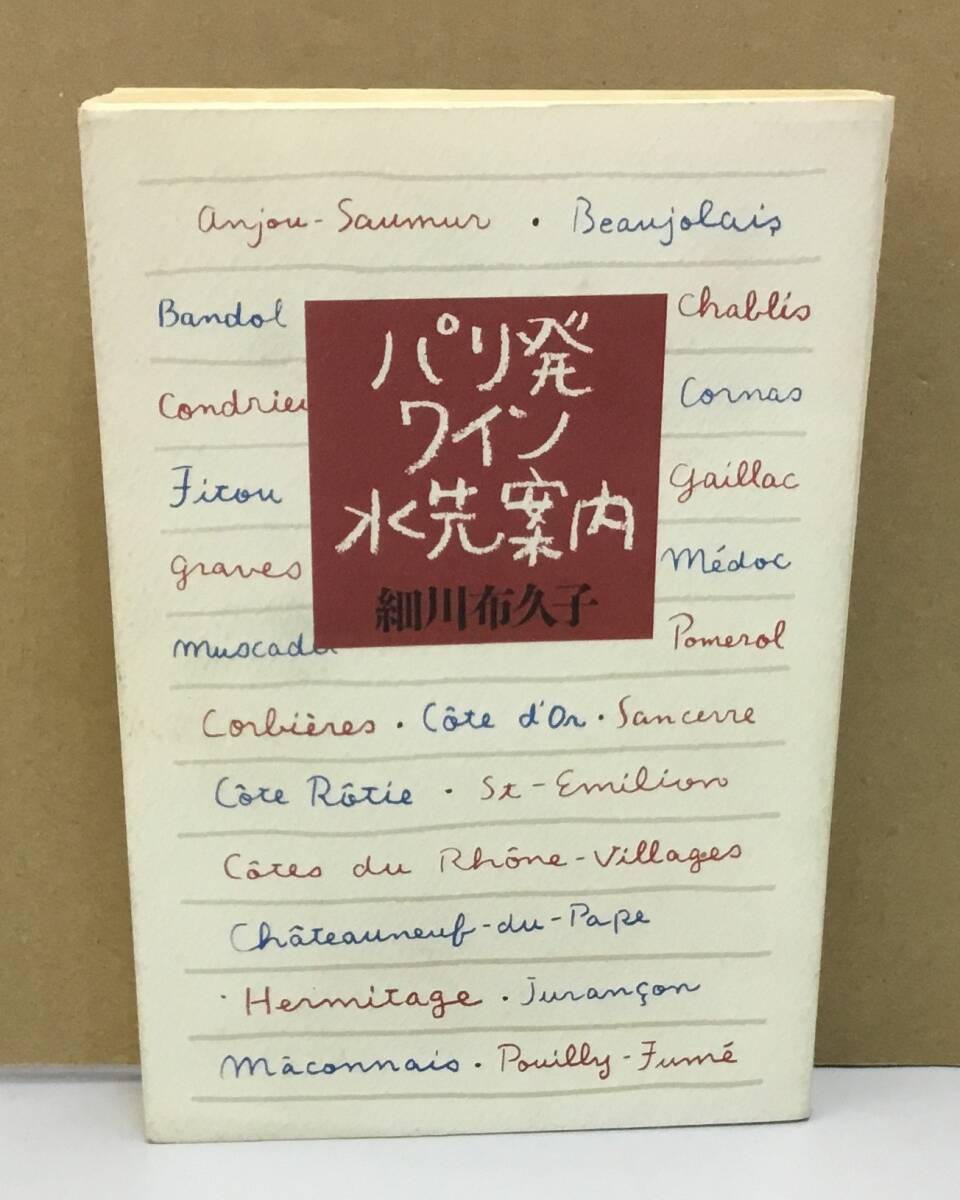 Anjou-Saumur · Beaujolais
Bandol
Chablis
Condrieu
Cornas
Fitou
Gaillac
Graves
Médoc
Muscadet
Pomerol
パリ発
ワイン
水先案内
細川布久子
Corbières · Côte d'Or · Sancerre
Côte Rôtie · St-Emilion
Côtes du Rhône-Villages
Châteauneuf-du-Pape
· Hermitage · Jurançon
Mâconnais · Pouilly-Fumé